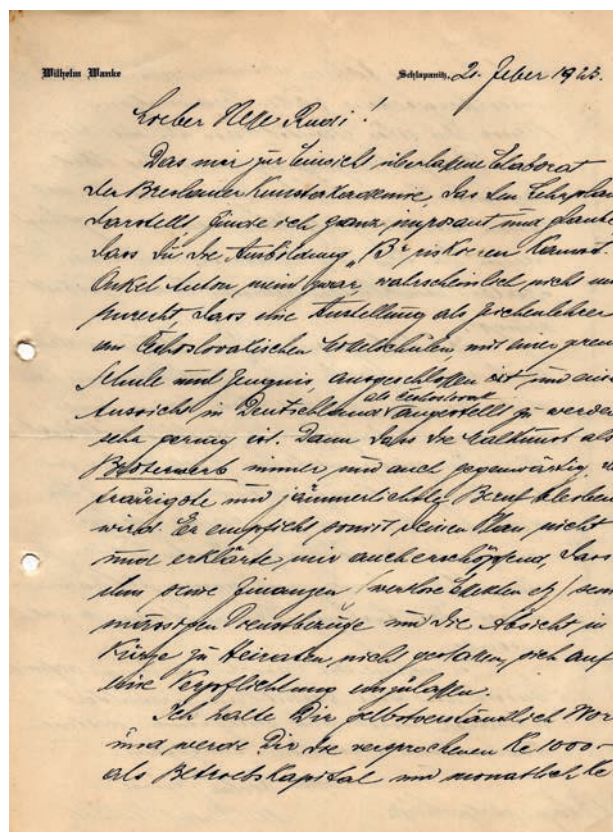 Wilhelm Wanke
Schlapanitz, 21. Feber 1923.
Lieber Neffe Rudi!
Das mir zur Einsicht überlassene Elaborat
der Breslauer Kunstakademie, das den Lehrplan
darstellt, finde ich ganz imposant und glaube
dass Du die Ausbildung „B" riskieren kannst.
Onkel Anton meint zwar wahrscheinlich nicht
unrecht dass eine Anstellung als Zeichenlehrer
an Čechoslovakischen Mittelschulen, mit einer
Schule und Zeugnis, ausgeschlossen ist und
als Čechoslovak
Aussicht in Deutschland angestellt zu werden
sehr gering ist. Dann dass die Malkunst als
Broterwerb immer und auch gegenwärtig
traurigste und jämmerlichste Beruf bleiben
wird. Er empficht somit deinen Plan nicht
und erklärte mir auch erschöpfend, dass
ihm seine Finanzen (wertlose Effekten etz) sein
mässigen Dienstbezüge und die Absicht in
Kürze zu Heiraten, nicht gestatten, sich auf
eine Verpflichtung einzulassen.
Ich halte Dir selbstverständlich Wort
und werde Dir die versprochenen Kc 1000-
als Betriebskapital und monatlich Kc